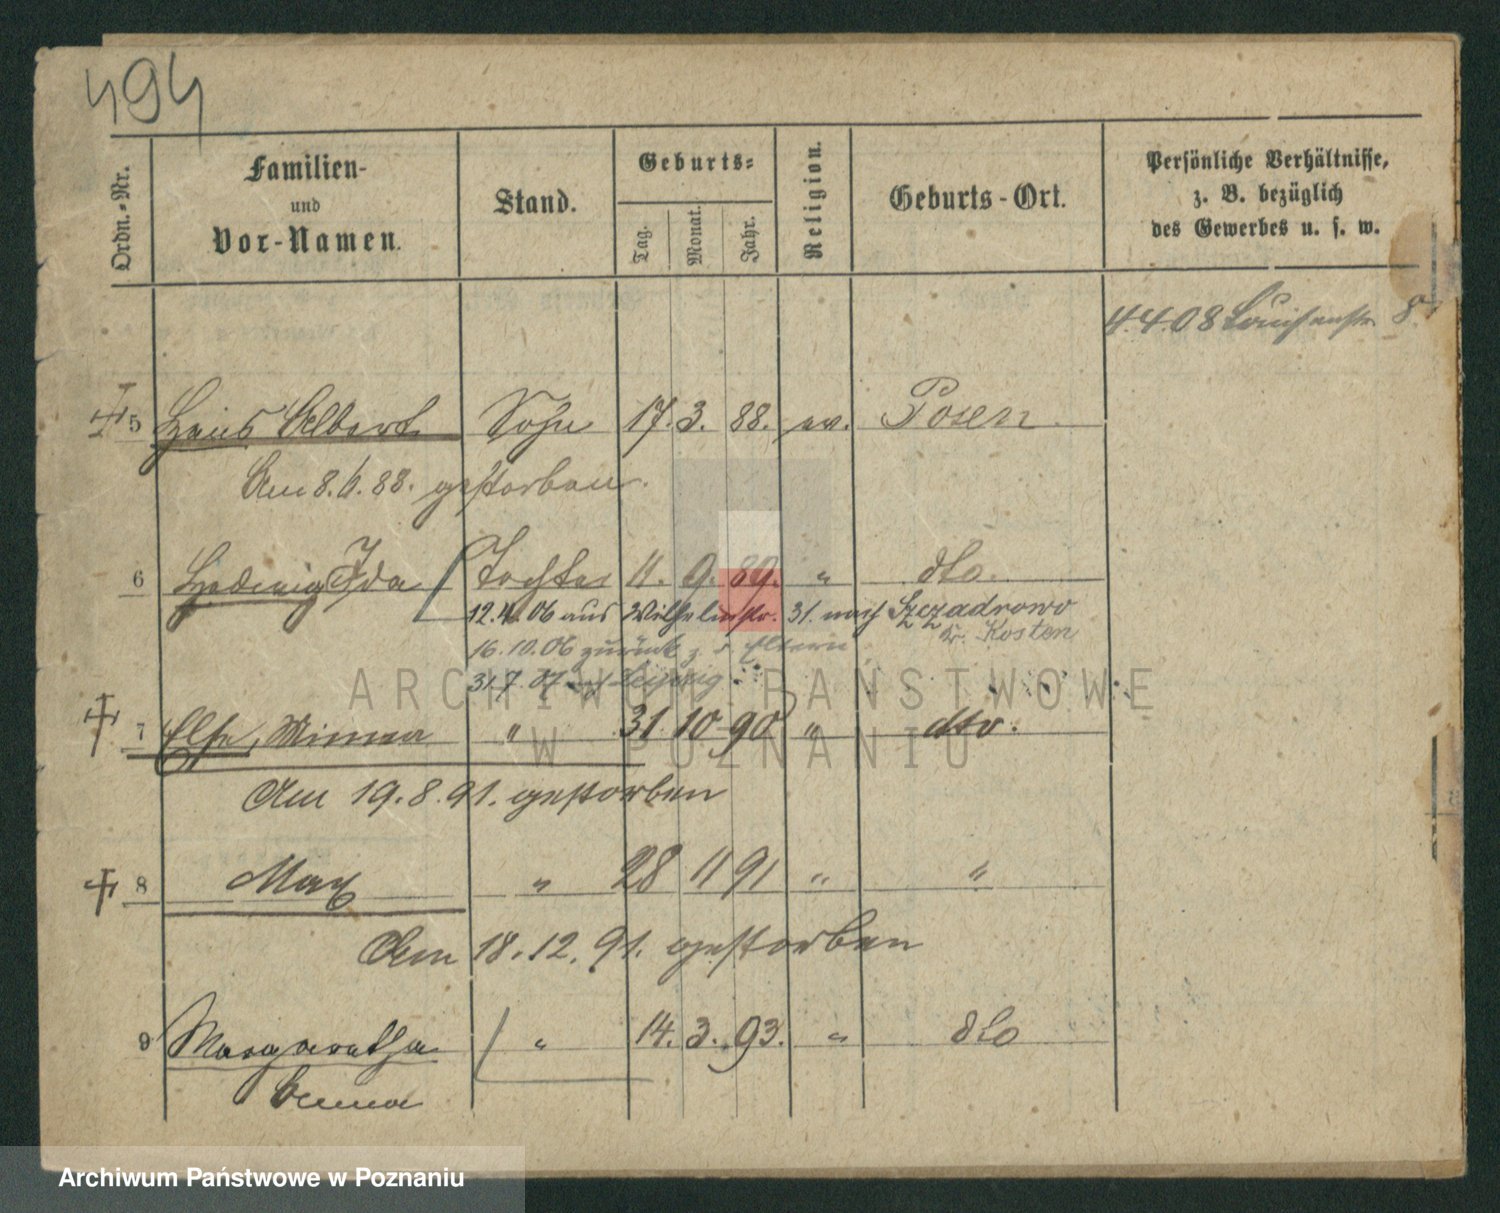 494
Ordn.-Nr.
Familien-
und
Vor-Namen.
Stand.
Geburts-
Tag.
Monat.
Jahr.
Religion.
Geburts-Ort.
Persönliche Verhältnisse,
z. B. bezüglich
des Gewerbes u. s. w.
4.4.08 Louisenstr. 8
5 Hans Albert Sohn 17. 3. 88. ev. Posen
Am 8.6.88. gestorben.
6 Hedwig Ida Tochter 11. 9. 89. " dto.
12.4.06 aus Wilhelmstr. 31. nach Szczadrowo
Kr. Kosten
16.10.06 zurück z. d. Eltern
31.7.07 nach Leipzig
7 Else, Minna " 31. 10 90 " dto.
Am 19.8.91. gestorben
8 Max " 28 11 91 " "
Am 18.12.91. gestorben
9 Margaretha " 14. 3. 93. " dto
Emma
ARCHIWUM PAŃSTWOWE
W POZNANIU
Archiwum Państwowe w Poznaniu